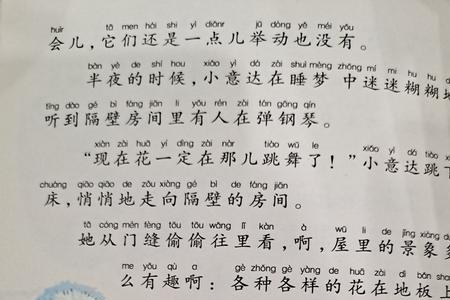 huìr tā men hái shi yì diǎnr jǔ dòng yě méi yǒu
会儿，它们还是一点儿举动也没有。
bàn yè de shí hou xiǎo yì dá zài shuì mèng zhōng mí mi hu hu
半夜的时候，小意达在睡梦中迷迷糊糊地
tīng dào gé bì fáng jiān li yǒu rén zài tán gāng qín
听到隔壁房间里有人在弹钢琴。
xiàn zài huā yí dìng zài nàr tiào wǔ le xiǎo yì dá tiào
“现在花一定在那儿跳舞了！”小意达跳
chuáng qiāo qiāo de zǒu xiàng gé bì de fáng jiān
床，悄悄地走向隔壁的房间。
tā cóng mén fèng tōu tōu wǎng lǐ kàn à wū li de jǐng xiàng
她从门缝偷偷往里看，啊，屋里的景象
me yǒu qù a gè zhǒng gè yàng de huā zài dì bǎn
么有趣啊：各种各样的花在地板上